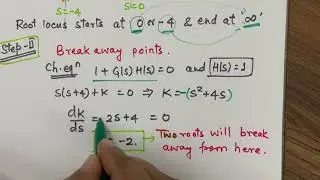 S=-4 S=0
Root locus starts at 0 or -4 & end at '∞'
Step-II
Break away points.
Ch. eqⁿ 1 + G(s) H(s) = 0 and H(s) = 1
S(s+4) + K = 0 ⇒ K = -(S²+4s)
dk/ds = 2s+4 = 0
= -2. → Two roots will break
away from here.